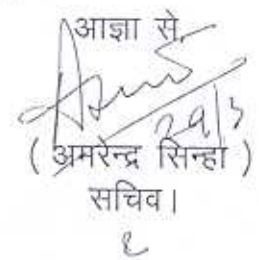 आज्ञा से,
29/3
( अमरेन्द्र सिन्हा )
सचिव।